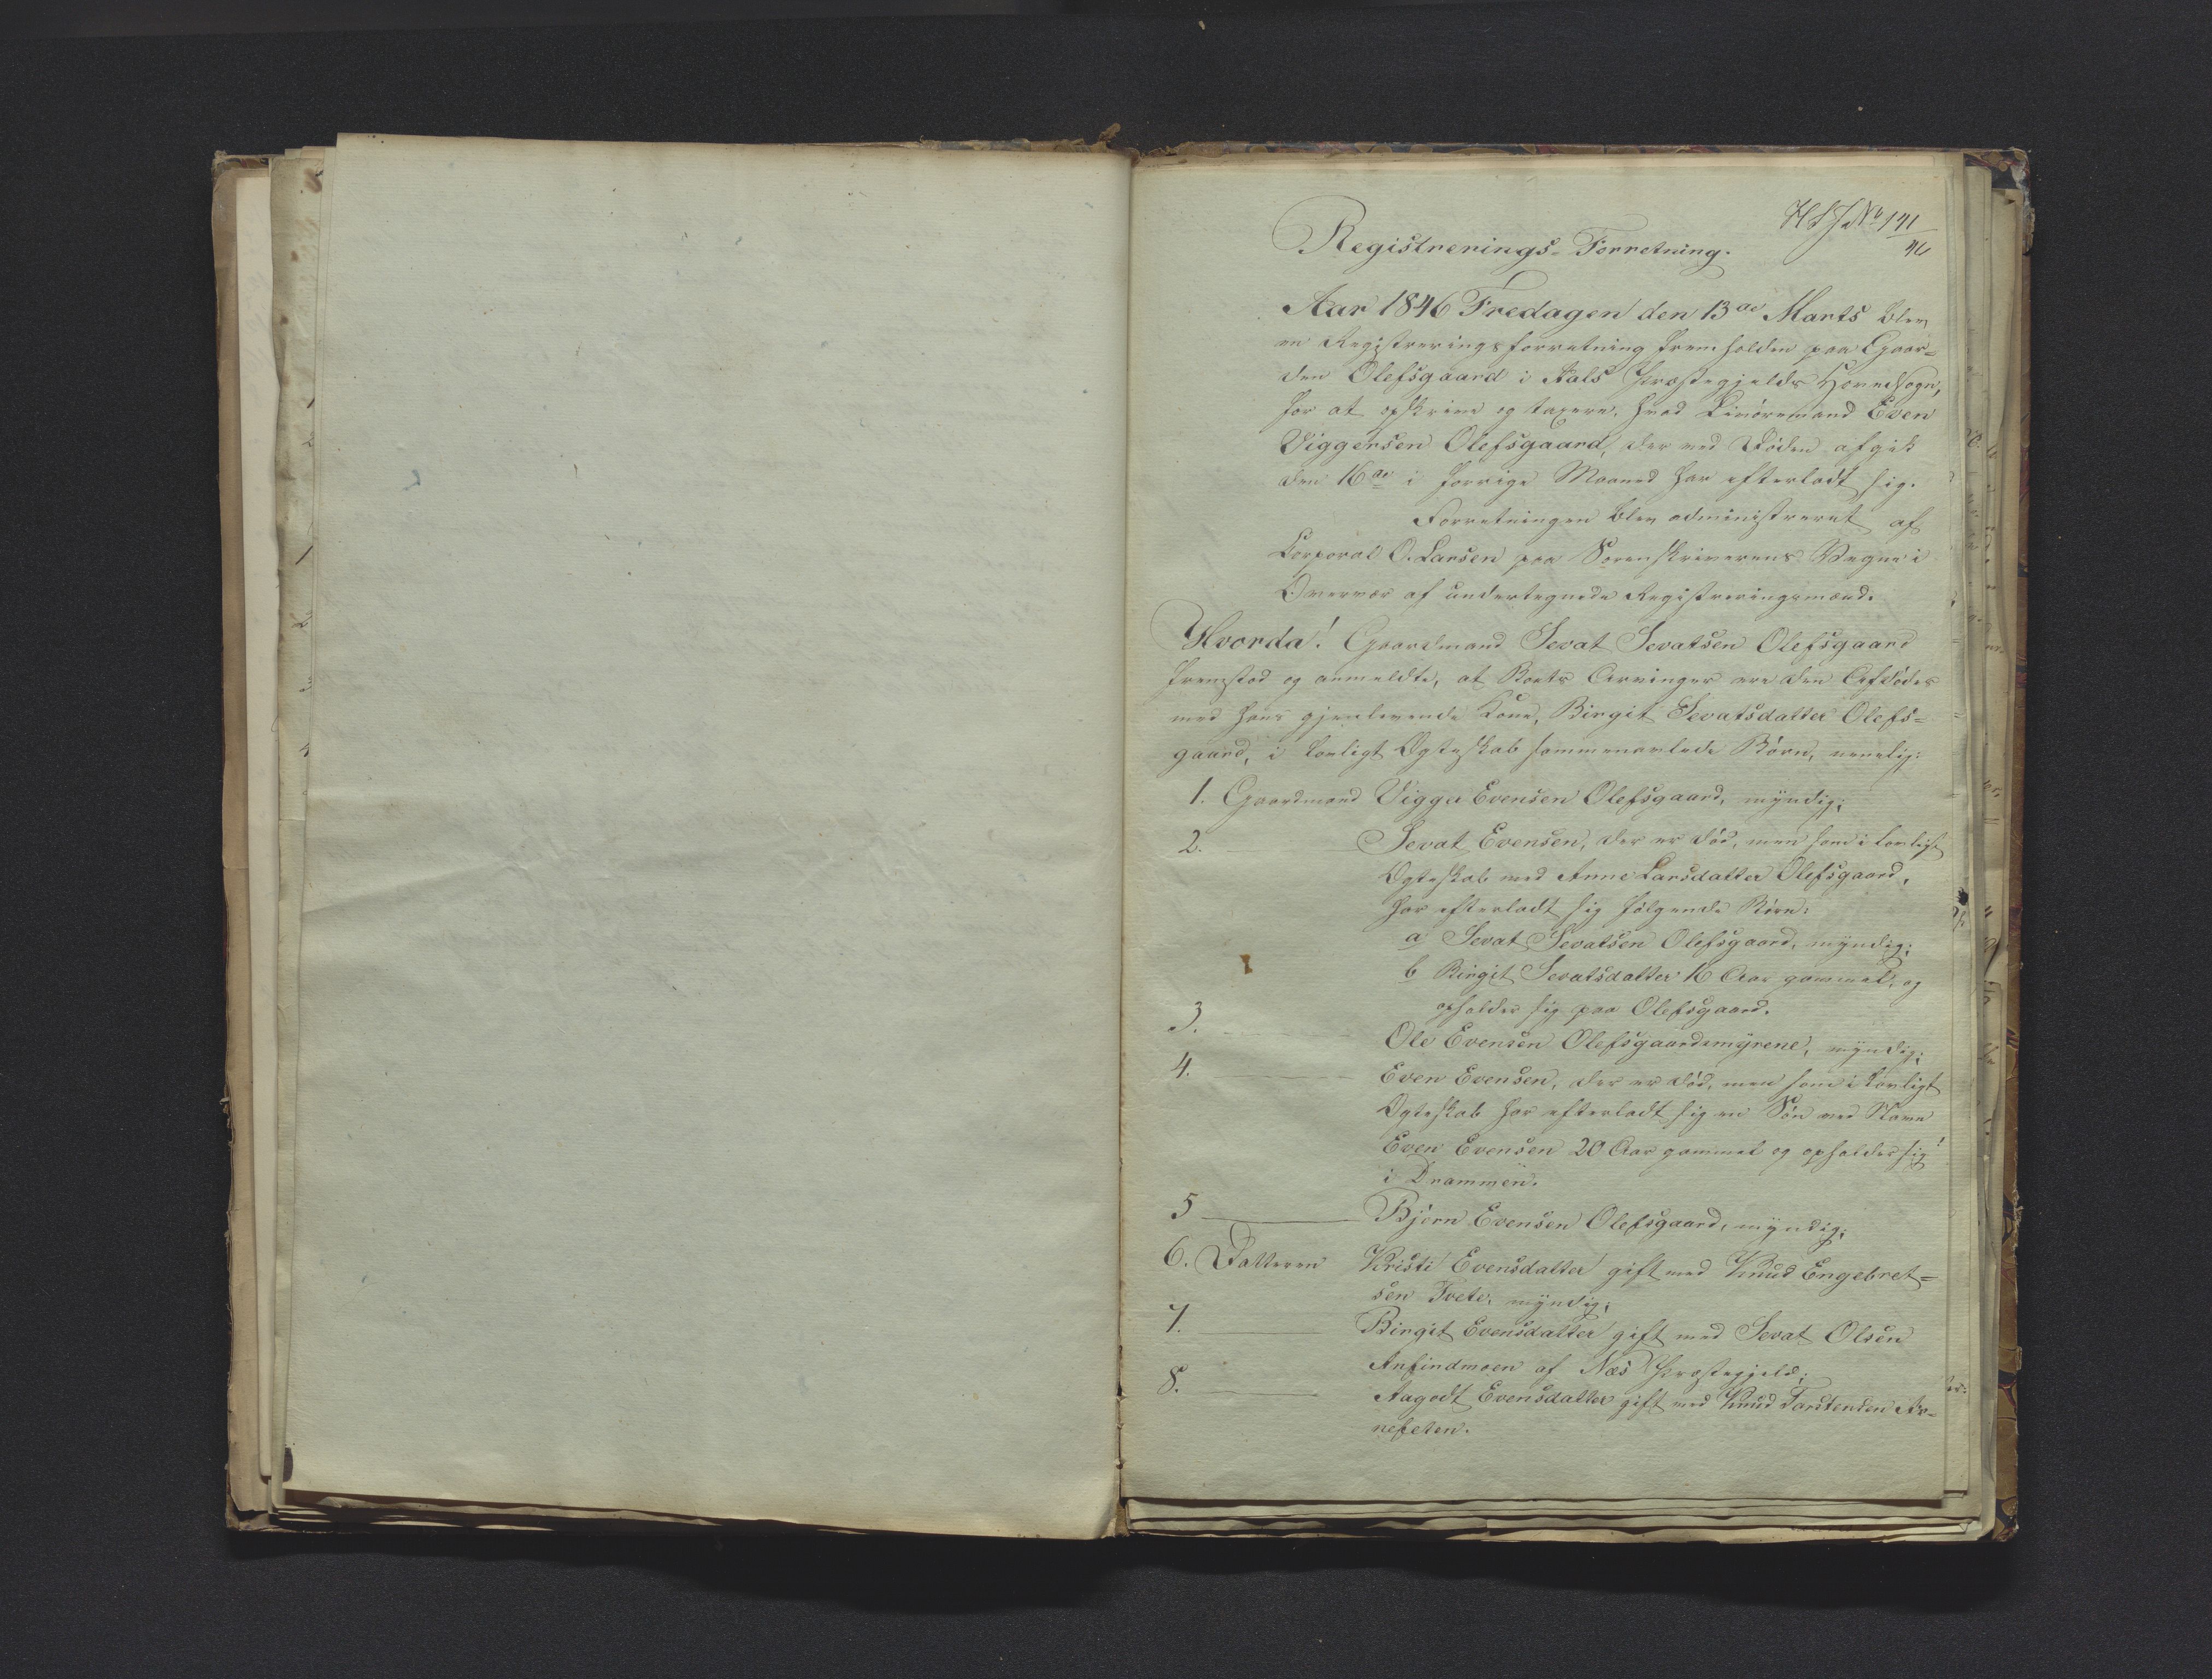 HSJ No 141
46
Registrerings-Forretning.
Aar 1846 Fredagen den 13de Marts blev
en Registreringsforretning fremholden paa Gaar=
den Olefsgaard i Aals Præstegjelds Hovedsogn,
for at opskrive og taxere, hvad Livøremand Even
Viggersen Olefsgaard, der ved Døden afgik
den 16de i forrige Maaned har efterladt sig.
Forretningen blev administreret af
Corporal O. Larsen paa Sorenskriverens Vegne i
Overvær af undertegnede Registreringsmænd.
Hvorda! Gaardmand Sevat Sevatsen Olefsgaard
fremstod og anmeldte, at Boets Arvinger ere den Afdødes
med hans gjenlevende Kone, Birgit Sevatsdatter Olefs=
gaard, i lovligt Ægteskab sammenavlede Børn, nemlig:
1. Gaardmand Vigger Evensen Olefsgaard, myndig;
2. Sevat Evensen, der er død, men som i lovligt
Ægteskab med Anne Larsdatter Olefsgaard,
har efterladt sig følgende Børn:
a Sevat Sevatsen Olefsgaard, myndig;
b Birgit Sevatsdatter 16 Aar gammel, og
opholder sig paa Olefsgaard.
3. Ole Evensen Olefsgaardsmyrene, myndig;
4. Even Evensen, der er død, men som i lovligt
Ægteskab har efterladt sig en Søn ved Navn
Even Evensen 20 Aar gammel og opholder sig
i Drammen.
5 Bjørn Evensen Olefsgaard, myndig;
6. Datteren Kristi Evensdatter gift med Knud Engebret=
sen Tvete, myndig;
7. Birgit Evensdatter gift med Sevat Olsen
Anfindmoen af Næs Præstegjeld;
8. Aagodt Evensdatter gift med Knud Torstensen